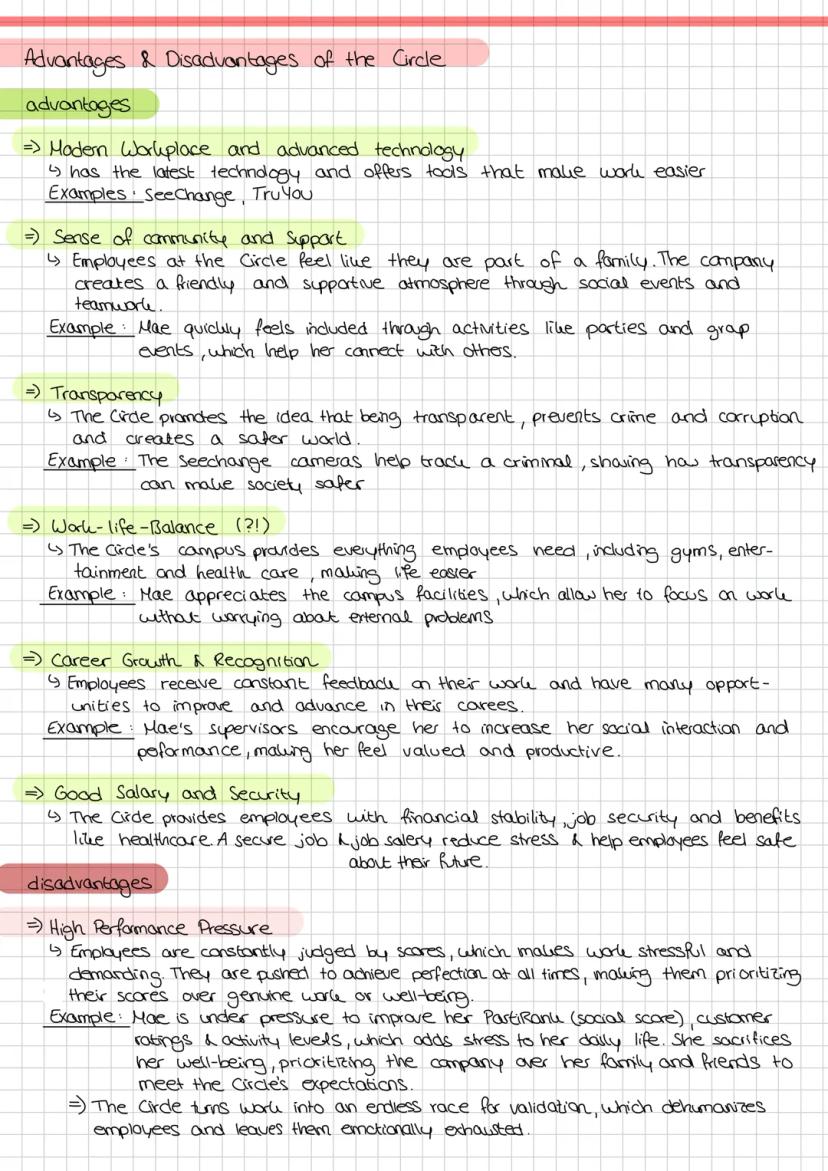 Advantages & Disadvantages of the Circle
advantages
=> Modern Workplace and advanced technology
↳ has the latest technology and offers tools that make work easier
Examples: SeeChange, TruYou
=> Sense of community and Support
↳ Employees at the Circle feel like they are part of a family. The company
creates a friendly and supportive atmosphere through social events and
teamwork.
Example: Mae quickly feels included through activities like parties and group
events, which help her connect with others.
=> Transparency
↳ The Circle promotes the idea that being transparent, prevents crime and corruption
and creates a safer world.
Example: The Seechange cameras help track a criminal, showing how transparency
can make society safer
=> Work-life-Balance (?!)
↳ The Circle's campus provides everything employees need, including gyms, enter-
tainment and health care, making life easier
Example: Mae appreciates the campus facilities, which allow her to focus on work
without worrying about external problems
=> Career Growth & Recognition
↳ Employees receive constant feedback on their work and have many opport-
unities to improve and advance in their carees.
Example: Mae's supervisors encourage her to increase her social interaction and
peformance, making her feel valued and productive.
=> Good Salary and Security
↳ The Circle provides employees with financial stability, job security and benefits
like healthcare. A secure job & job salery reduce stress & help employees feel safe
about their future.
disadvantages
=> High Performance Pressure
↳ Employees are constantly judged by scores, which makes work stressful and
demanding. They are pushed to achieve perfection at all times, making them prioritizing
their scores over genuine work or well-being.
Example: Mae is under pressure to improve her PartiRank (social score), customer
ratings & activity levels, which adds stress to her daily life. She sacrifices
her well-being, prioritizing the company over her family and friends to
meet the Circle's expectations.
=> The Circle turns work into an endless race for validation, which dehumanizes
employees and leaves them emotionally exhausted.